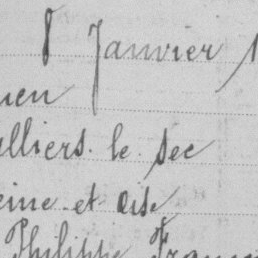 8 Janvier 1
uen
lliers. le. sec
eine. et oise
Philippe